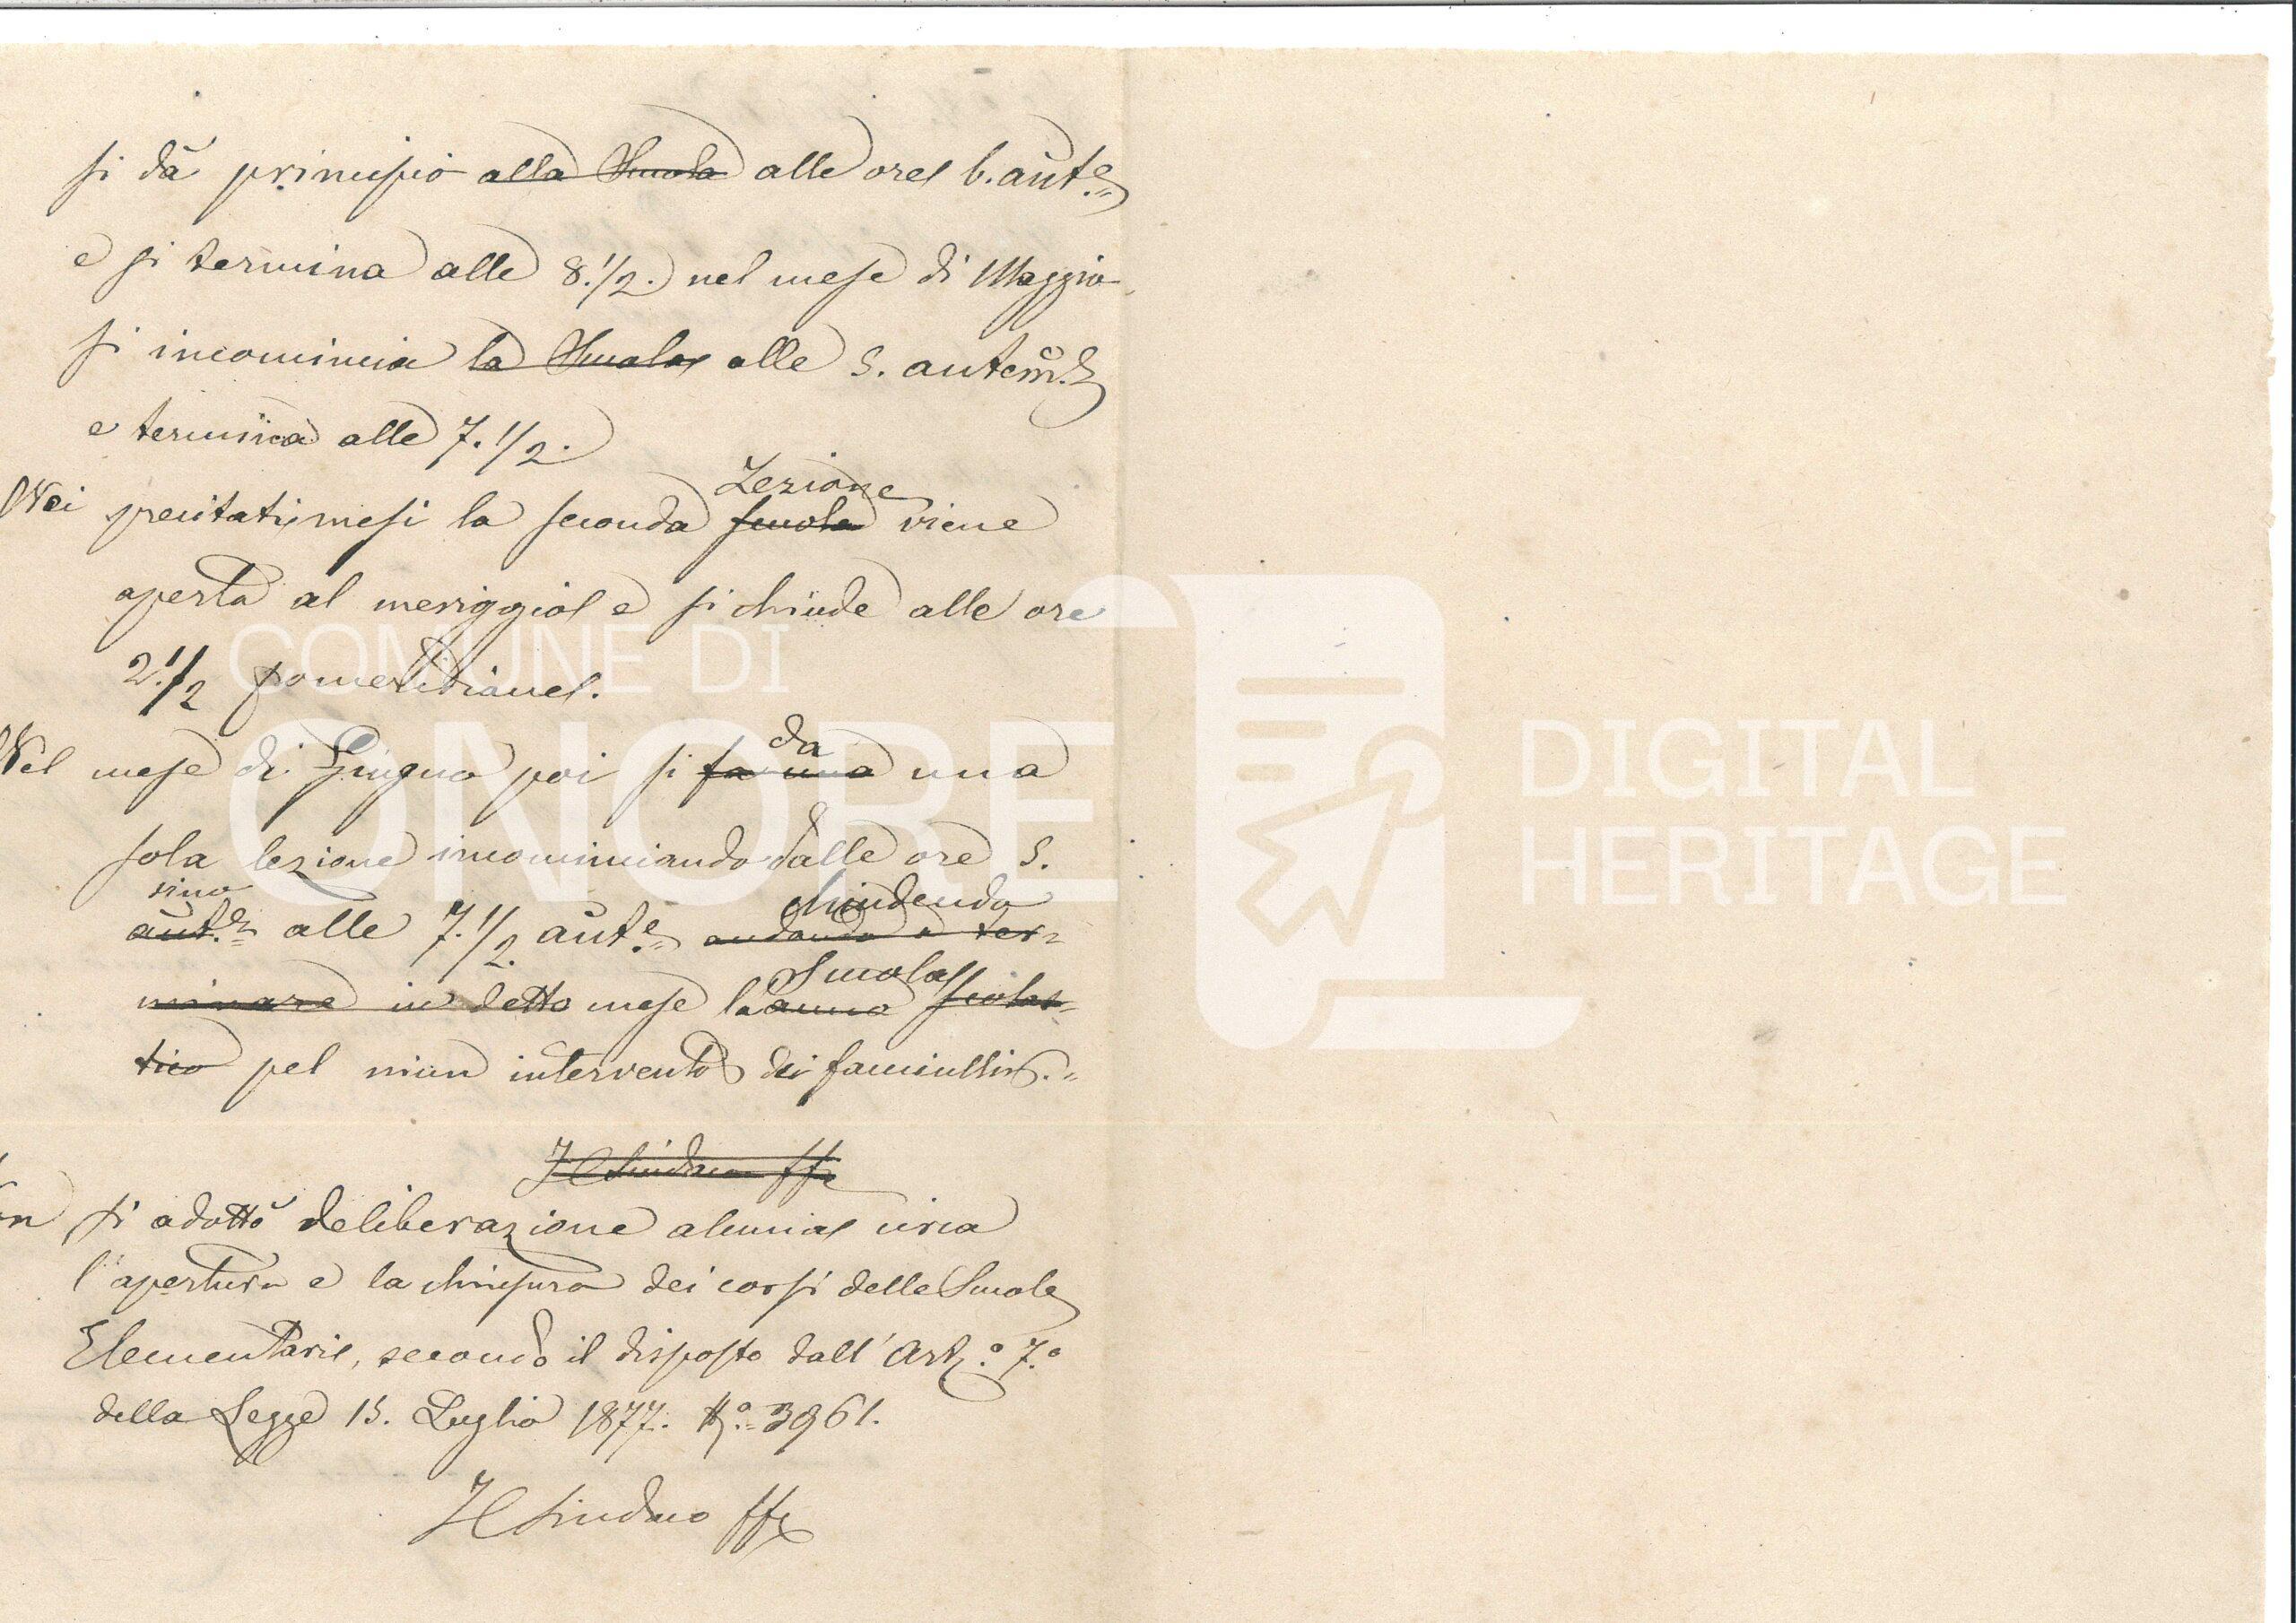 si dà principio alla Scuola alle ore 6. ant.e
e si termina alle 8.1/2. nel mese di Maggio
si incomincia la Scuola alle 5. antem.e
e termina alle 7.1/2.
Lezione
Nei precitati mesi la seconda scuola viene
aperta al meriggio e si chiude alle ore
2.1/2 pomeridiane.
da
Nel mese di Giugno poi si fa una una
sola lezione incominciando dalle ore 5.
sino chiudendo
ant.e alle 7.1/2. ant.e andando a ter=
Scuola
minare in detto mese la anno scolas=
tico pel niun intervento dei fanciulli.
Il Sindaco ff
si adottò deliberazione alcuna circa
l'apertura e la chiusura dei corsi delle Scuole
Elementari, secondo il disposto dall'Art.o 7.o
della Legge 15. Luglio 1877. N.o 3961.
Il Sindaco ff
COMUNE DI
ONORE
DIGITAL
HERITAGE